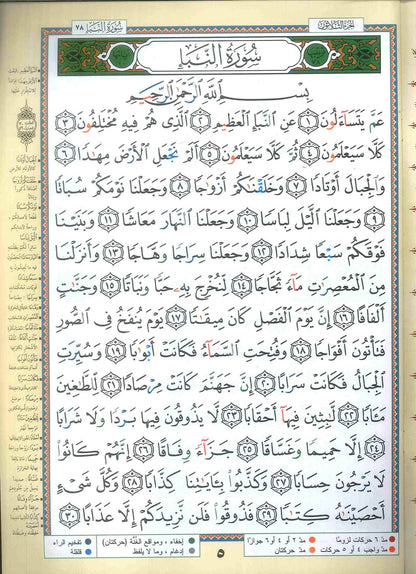 الجزء الثلاثون
سُورَةُ النَّبَإِ ٧٨
سُورَةُ النَّبَإِ
بِسْمِ اللَّهِ الرَّحْمَٰنِ الرَّحِيمِ
عَمَّ يَتَسَآءَلُونَ ۝١ عَنِ ٱلنَّبَإِ ٱلْعَظِيمِ ۝٢ ٱلَّذِى هُمْ فِيهِ مُخْتَلِفُونَ ۝٣
كَلَّا سَيَعْلَمُونَ ۝٤ ثُمَّ كَلَّا سَيَعْلَمُونَ ۝٥ أَلَمْ نَجْعَلِ ٱلْأَرْضَ مِهَٰدًا ۝٦
وَٱلْجِبَالَ أَوْتَادًا ۝٧ وَخَلَقْنَٰكُمْ أَزْوَٰجًا ۝٨ وَجَعَلْنَا نَوْمَكُمْ سُبَاتًا
۝٩ وَجَعَلْنَا ٱلَّيْلَ لِبَاسًا ۝١٠ وَجَعَلْنَا ٱلنَّهَارَ مَعَاشًا ۝١١ وَبَنَيْنَا
فَوْقَكُمْ سَبْعًا شِدَادًا ۝١٢ وَجَعَلْنَا سِرَاجًا وَهَّاجًا ۝١٣ وَأَنزَلْنَا
مِنَ ٱلْمُعْصِرَٰتِ مَآءً ثَجَّاجًا ۝١٤ لِّنُخْرِجَ بِهِۦ حَبًّا وَنَبَاتًا ۝١٥ وَجَنَّٰتٍ
أَلْفَافًا ۝١٦ إِنَّ يَوْمَ ٱلْفَصْلِ كَانَ مِيقَٰتًا ۝١٧ يَوْمَ يُنفَخُ فِى ٱلصُّورِ
فَتَأْتُونَ أَفْوَاجًا ۝١٨ وَفُتِحَتِ ٱلسَّمَآءُ فَكَانَتْ أَبْوَٰبًا ۝١٩ وَسُيِّرَتِ
ٱلْجِبَالُ فَكَانَتْ سَرَابًا ۝٢٠ إِنَّ جَهَنَّمَ كَانَتْ مِرْصَادًا ۝٢١ لِّلطَّٰغِينَ
مَـَٔابًا ۝٢٢ لَّٰبِثِينَ فِيهَآ أَحْقَابًا ۝٢٣ لَّا يَذُوقُونَ فِيهَا بَرْدًا وَلَا شَرَابًا
۝٢٤ إِلَّا حَمِيمًا وَغَسَّاقًا ۝٢٥ جَزَآءً وِفَاقًا ۝٢٦ إِنَّهُمْ كَانُوا۟
لَا يَرْجُونَ حِسَابًا ۝٢٧ وَكَذَّبُوا۟ بِـَٔايَٰتِنَا كِذَّابًا ۝٢٨ وَكُلَّ شَىْءٍ
أَحْصَيْنَٰهُ كِتَٰبًا ۝٢٩ فَذُوقُوا۟ فَلَن نَّزِيدَكُمْ إِلَّا عَذَابًا ۝٣٠
مدّ ٦ حركات لزومًا مدّ ٢ أو ٤ أو ٦ جوازًا إخفاء، ومواقع الغُنَّة (حركتان) تفخيم الراء
مدّ واجب ٤ أو ٥ حركات مدّ حركتان إدغام، وما لا يُلفظ قلقلة
٥